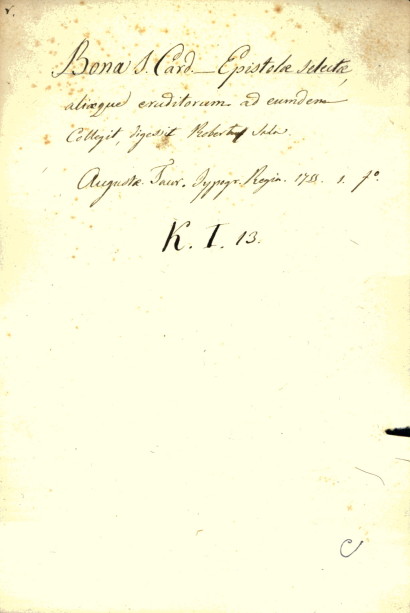 Bona J. Card. — Epistolæ selectæ,
aliæque eruditorum ad eumdem
Collegit, digessit Robertus Sala.
Augustæ Taur. Typogr. Regia. 1755. 1. fº.
K. I. 13.